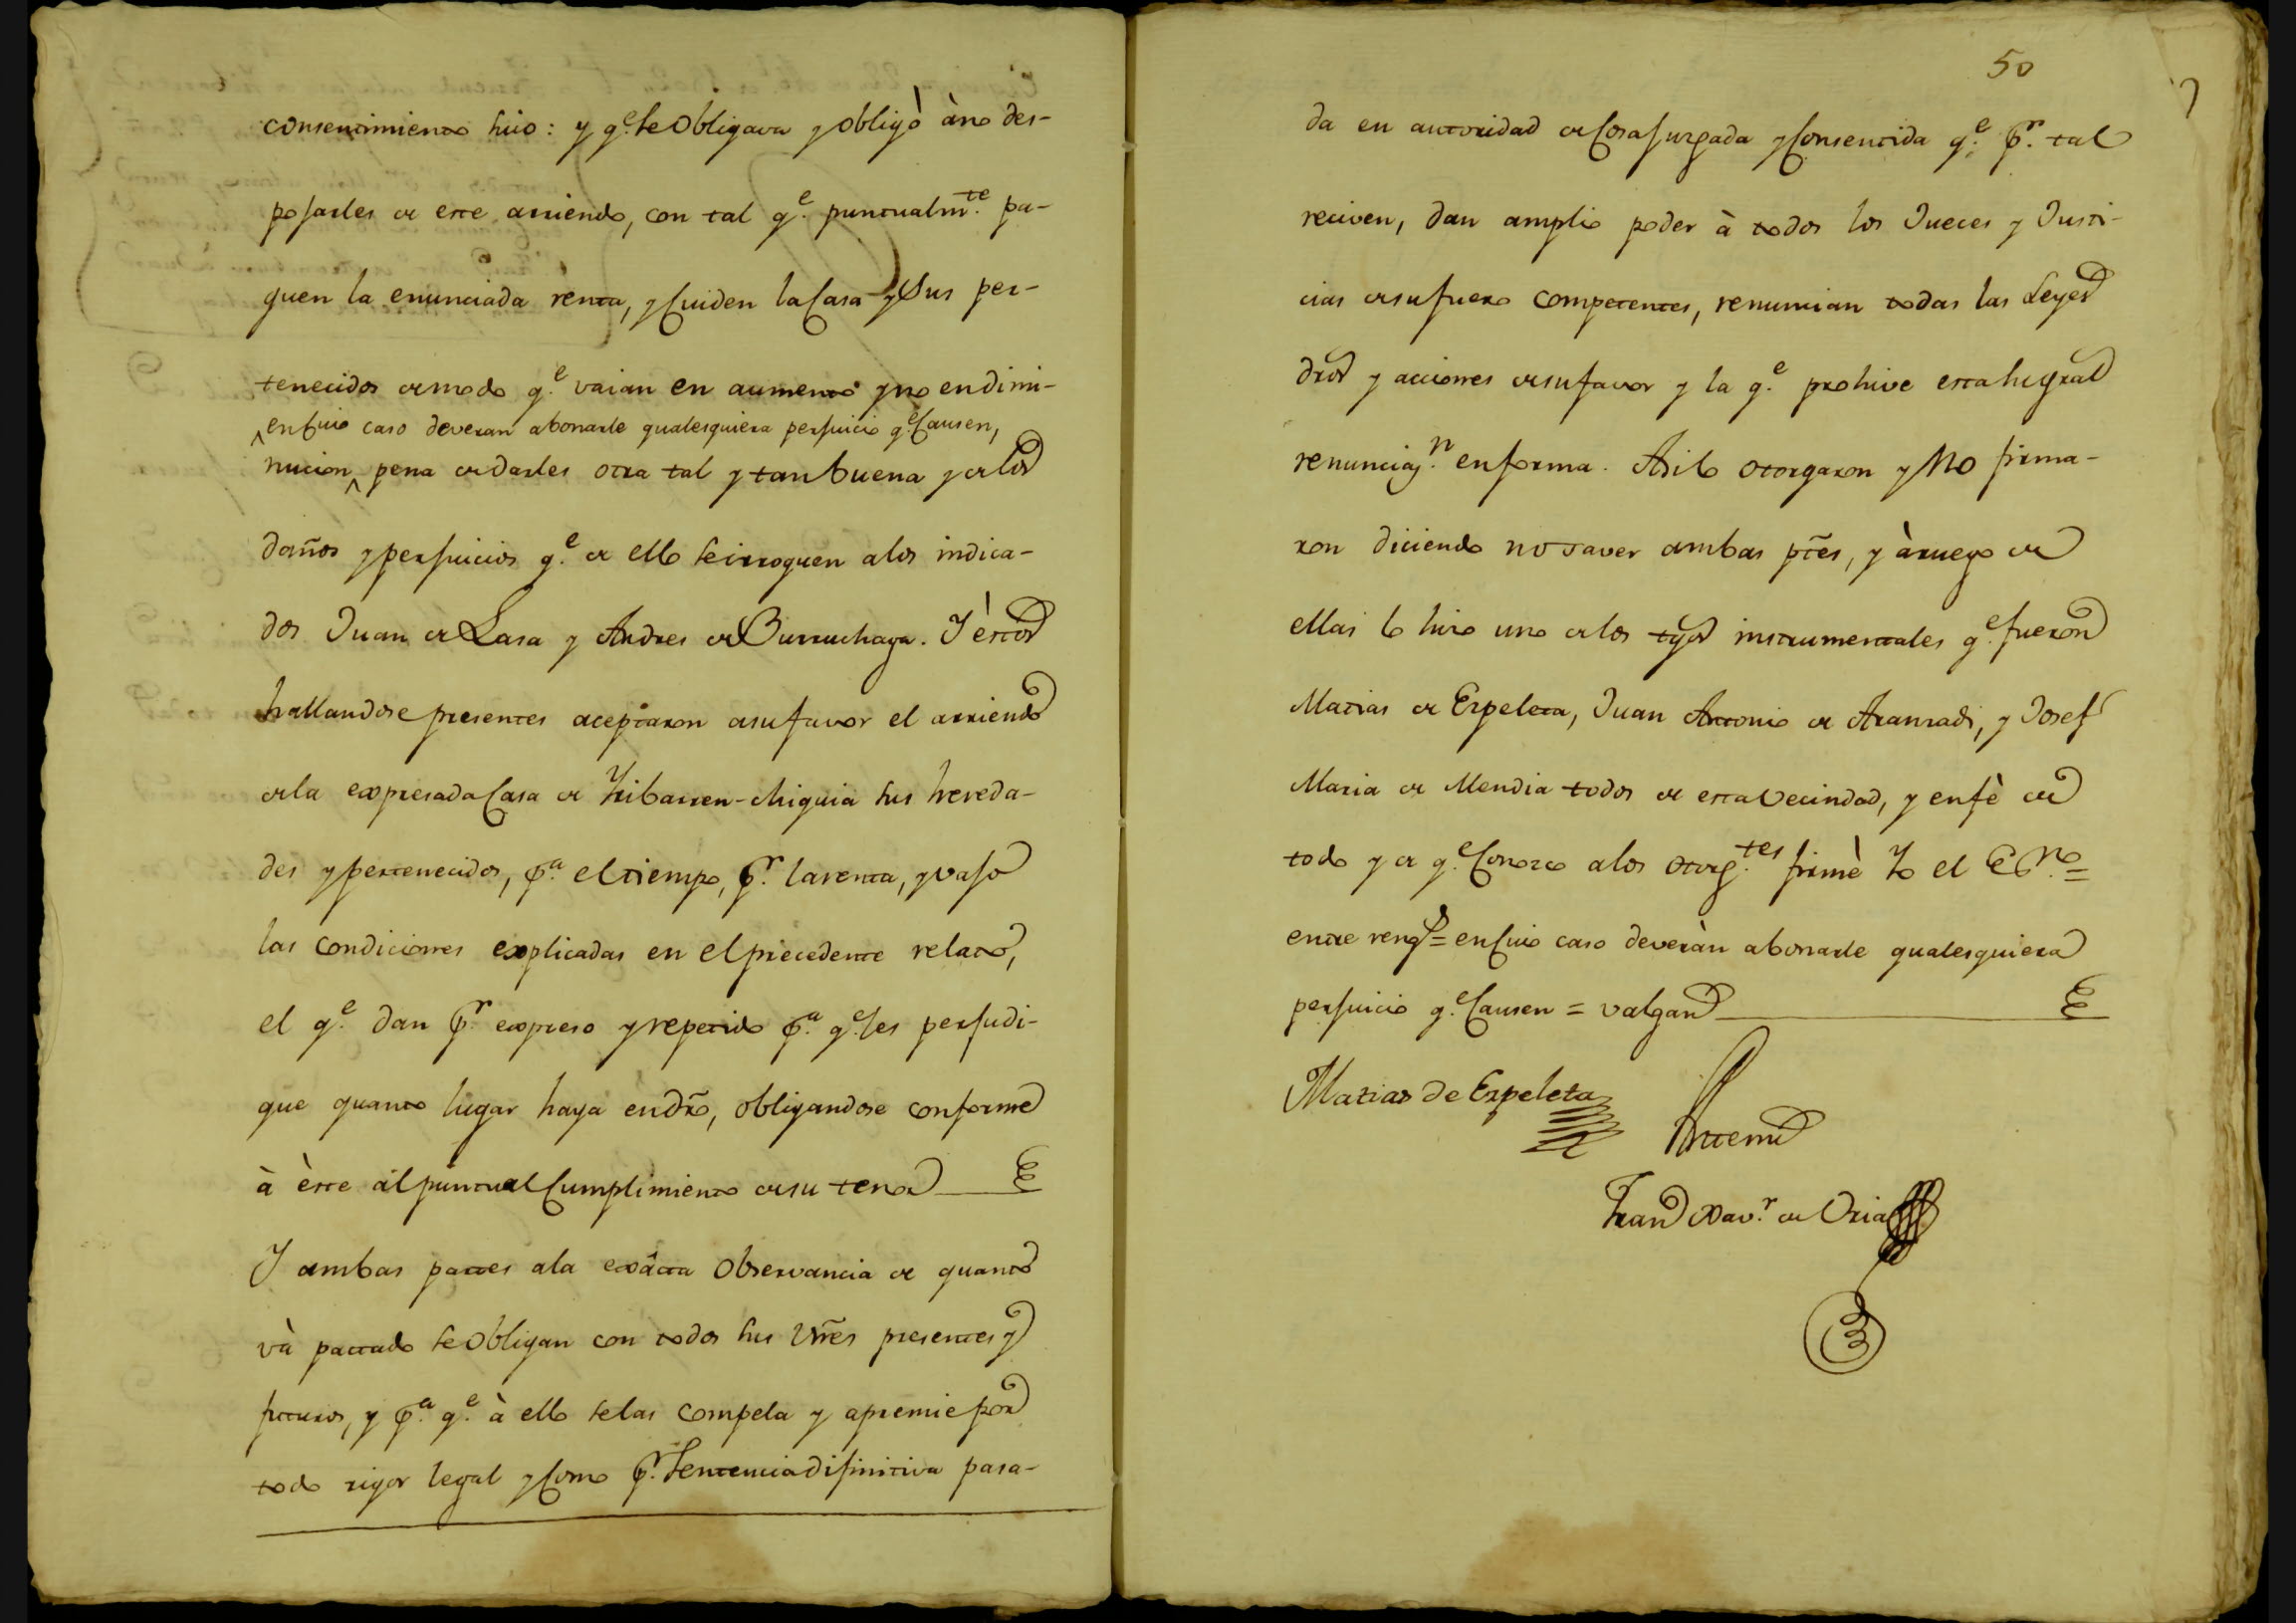 consentimiento hiio: y q.e se obligava y obligò à no des-
pojarles de este arriendo, con tal q.e puntualm.te pa-
guen la enunciada renta, y Cuiden la Casa y Sus per-
tenecidos de modo q.e vaian en aumento y no en dimi-
en Cuio caso deveran abonarle qualesquiera perjuicio q.e Causen,
nucion ^ pena de darles otra tal y tan buena y de los
daños y perjuicios q.e de ello se irroguen a los indica-
dos Juan de Lasa y Andres de Burruchaga. Y èstos
hallandose presentes aceptaron a su favor el arriendo
de la expresada Casa de Yribarren-chiquia sus hereda-
des y pertenecidos, p.a el tiempo, p.r la renta, y vajo
las condiciones explicadas en el precedente relato,
el q.e dan p.r expreso y repetido p.a q.e les perjudi-
que quanto lugar haya en dro, obligandose conforme
à èste al puntual Cumplimiento de su tenor
Y ambas partes a la exâcta observancia de quanto
và pactado se obligan con todos sus Vnes presentes y
futuros, y p.a q.e à ello se las compela y apremie por
todo rigor legal y Como p.r Sentencia difinitiva pasa-
50
da en autoridad de Cosa Juzgada y Consentida q.e p.r tal
reciven, dan amplio poder à todos los Jueces y Justi-
cias de su fuero competentes, renuncian todas las Leyes
dros y acciones de su favor y la q.e prohive esta h gral
renunciaz.n en forma. Asi lo otorgaron y No firma-
ron diciendo no saver ambas ptes, y à ruego de
ellas lo hizo uno de los tgos instrumentales q.e fueron
Matias de Ezpeleta, Juan Antonio de Aranzadi, y Josef
Maria de Mendia todos de esta Vecindad, y en fè de
todo y de q.e Conozco a los otorg.tes firmè Yo el Es.no =
entre rengs = en Cuio caso deveràn abonarle qualesquiera
perjuicio q.e Causen = valgan
Matias de Ezpeleta
Antemi
Fran.co Xav.r de Oria